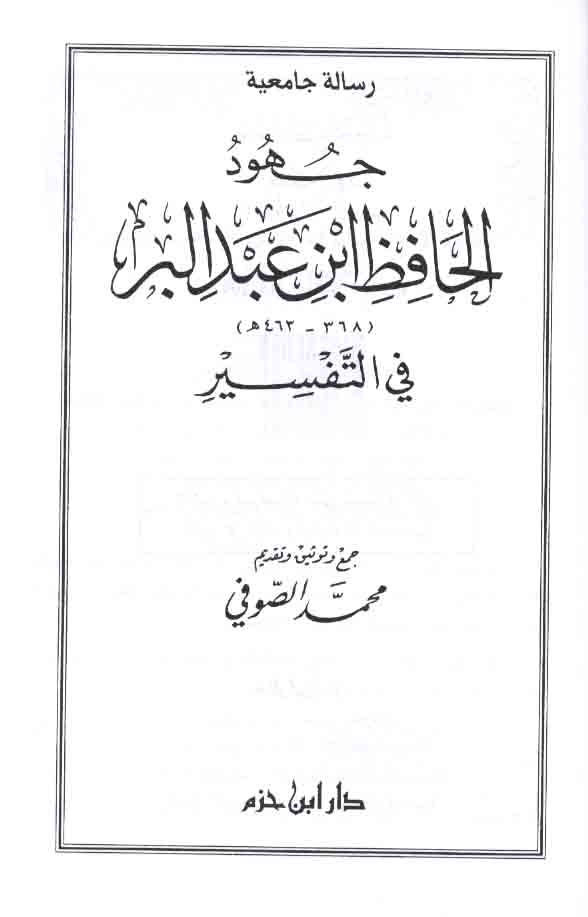 رسالة جامعية
جُهُودُ
الحَافِظِ ابْنِ عَبْدِ البر
(٣٦٨ - ٤٦٣هـ)
في التَّفْسِيرِ
جمع وتوثيق وتقديم
محمَّد الصّوفي
دار ابن حزم